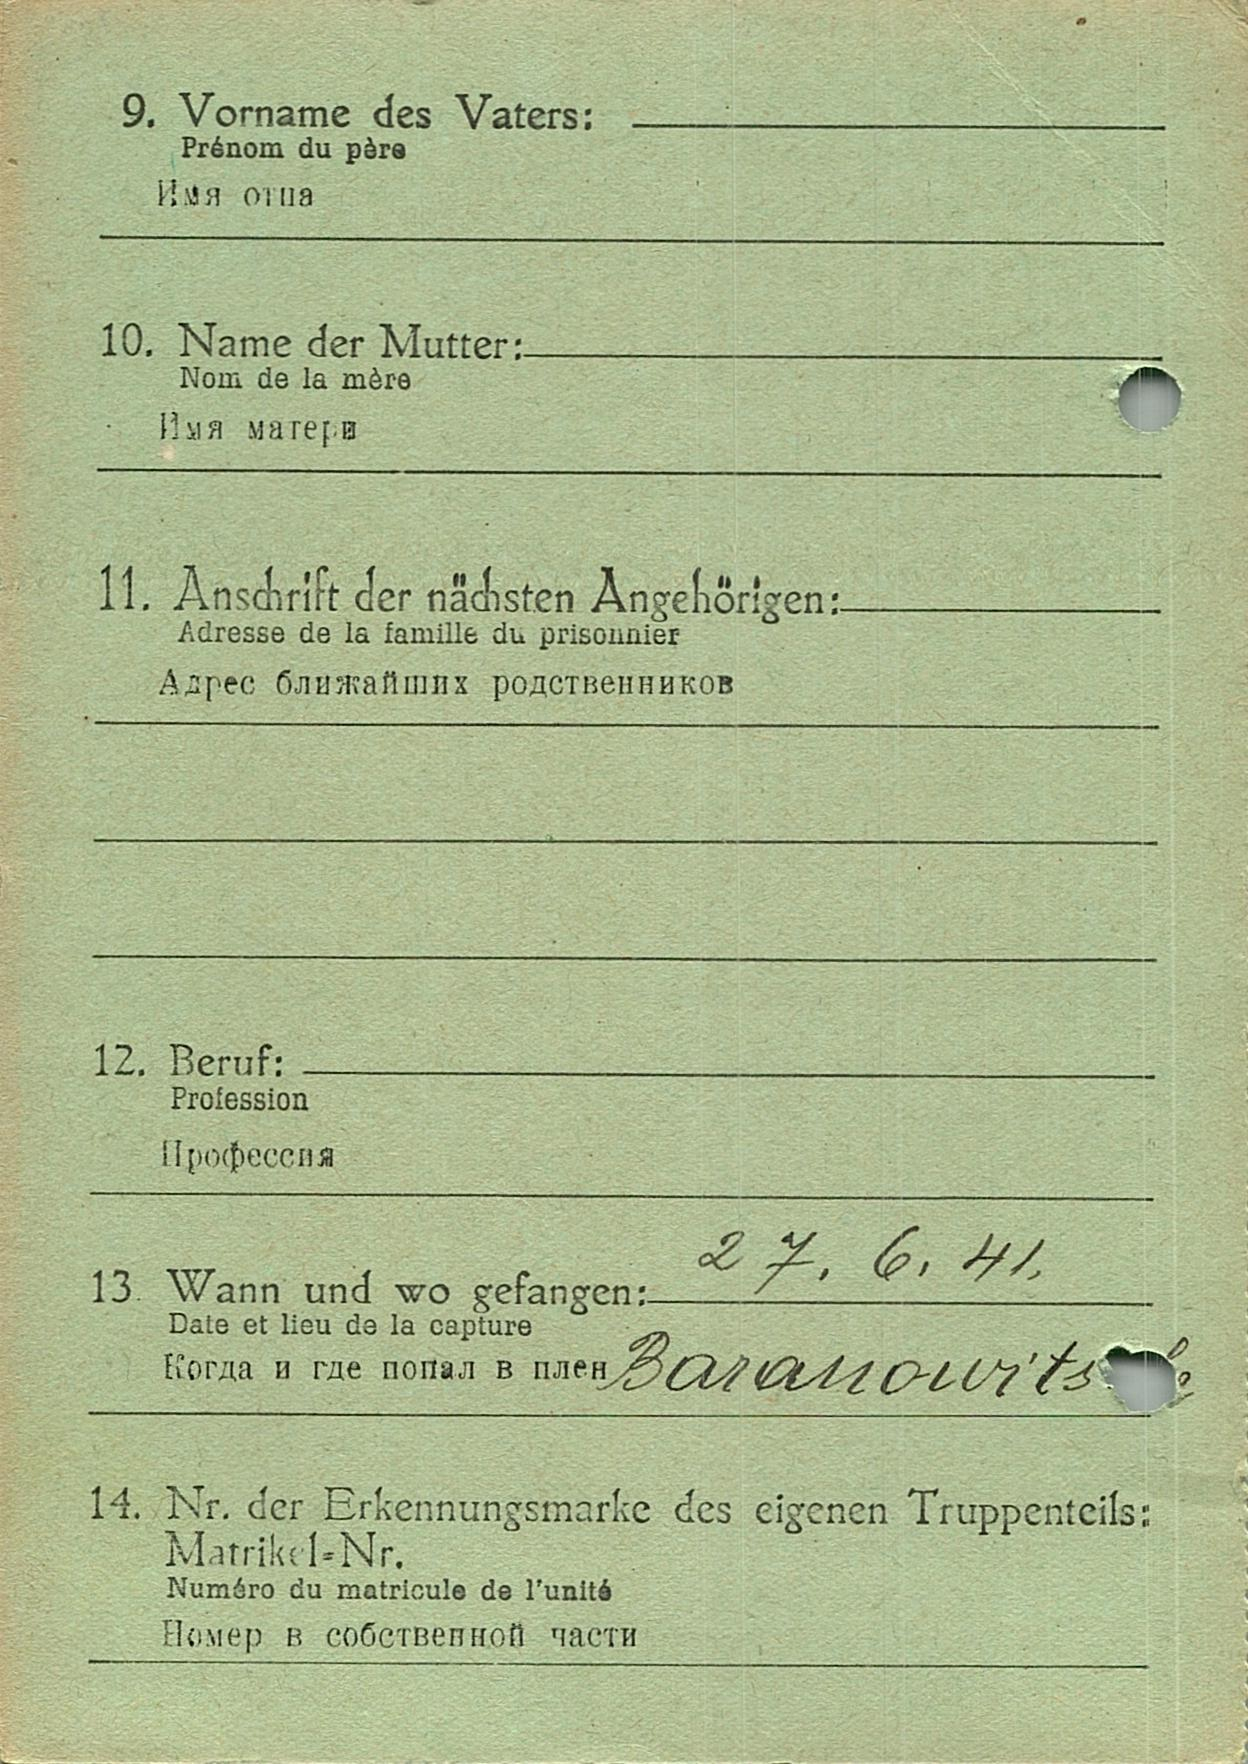 9. Vorname des Vaters:
Prénom du père
Имя отца
10. Name der Mutter:
Nom de la mère
Имя матери
11. Anschrift der nächsten Angehörigen:
Adresse de la famille du prisonnier
Адрес ближайших родственников
12. Beruf:
Profession
Профессия
27. 6. 41.
13. Wann und wo gefangen:
Date et lieu de la capture
Когда и где попал в плен
14. Nr. der Erkennungsmarke des eigenen Truppenteils:
Matrikel-Nr.
Numéro du matricule de l'unité
Номер в собственной части